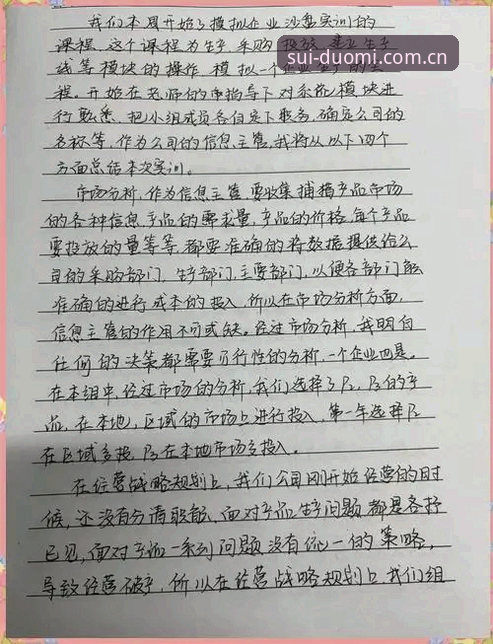 我们本周开始了模拟企业沙盘实训的
sui-duomi.com.cn
课程，这个课程为生产采购投放，建立生产
线等模块的操作，模拟一个企业生产的全
程。开始在老师的指导下对系统模块进
行熟悉，把小组成员各自定下职务，确定公司的
名称等，作为公司的信息主管，我将从以下四个
方面总结本次实训。
市场分析，作为信息主管，要收集捕捕产品市场
的各种信息，产品的需求量，产品的价格，每个产品
要投放的量等等，都要准确的将数据提供给公
司的采购部门，生产部门，主要部门，以便各部门能
准确的进行成本的投入，所以在市场分析方面，
信息主管的作用不可或缺。经过市场分析，我明白
任何的决策都需要可行性的分析，一个企业也是。
在本组中，经过市场的分析，我们选择了P，P的产
品，在本地，区域的市场上进行投入，第一年选择P
在区域多投，P在本地市场多投入。
在经营战略规划上，我们公司刚开始经营的时
候，还没有分清职能，面对产品生产问题都是各抒
己见，面对产品一系列问题没有统一的策略，
导致经营破产，所以在经营战略规划上我们组